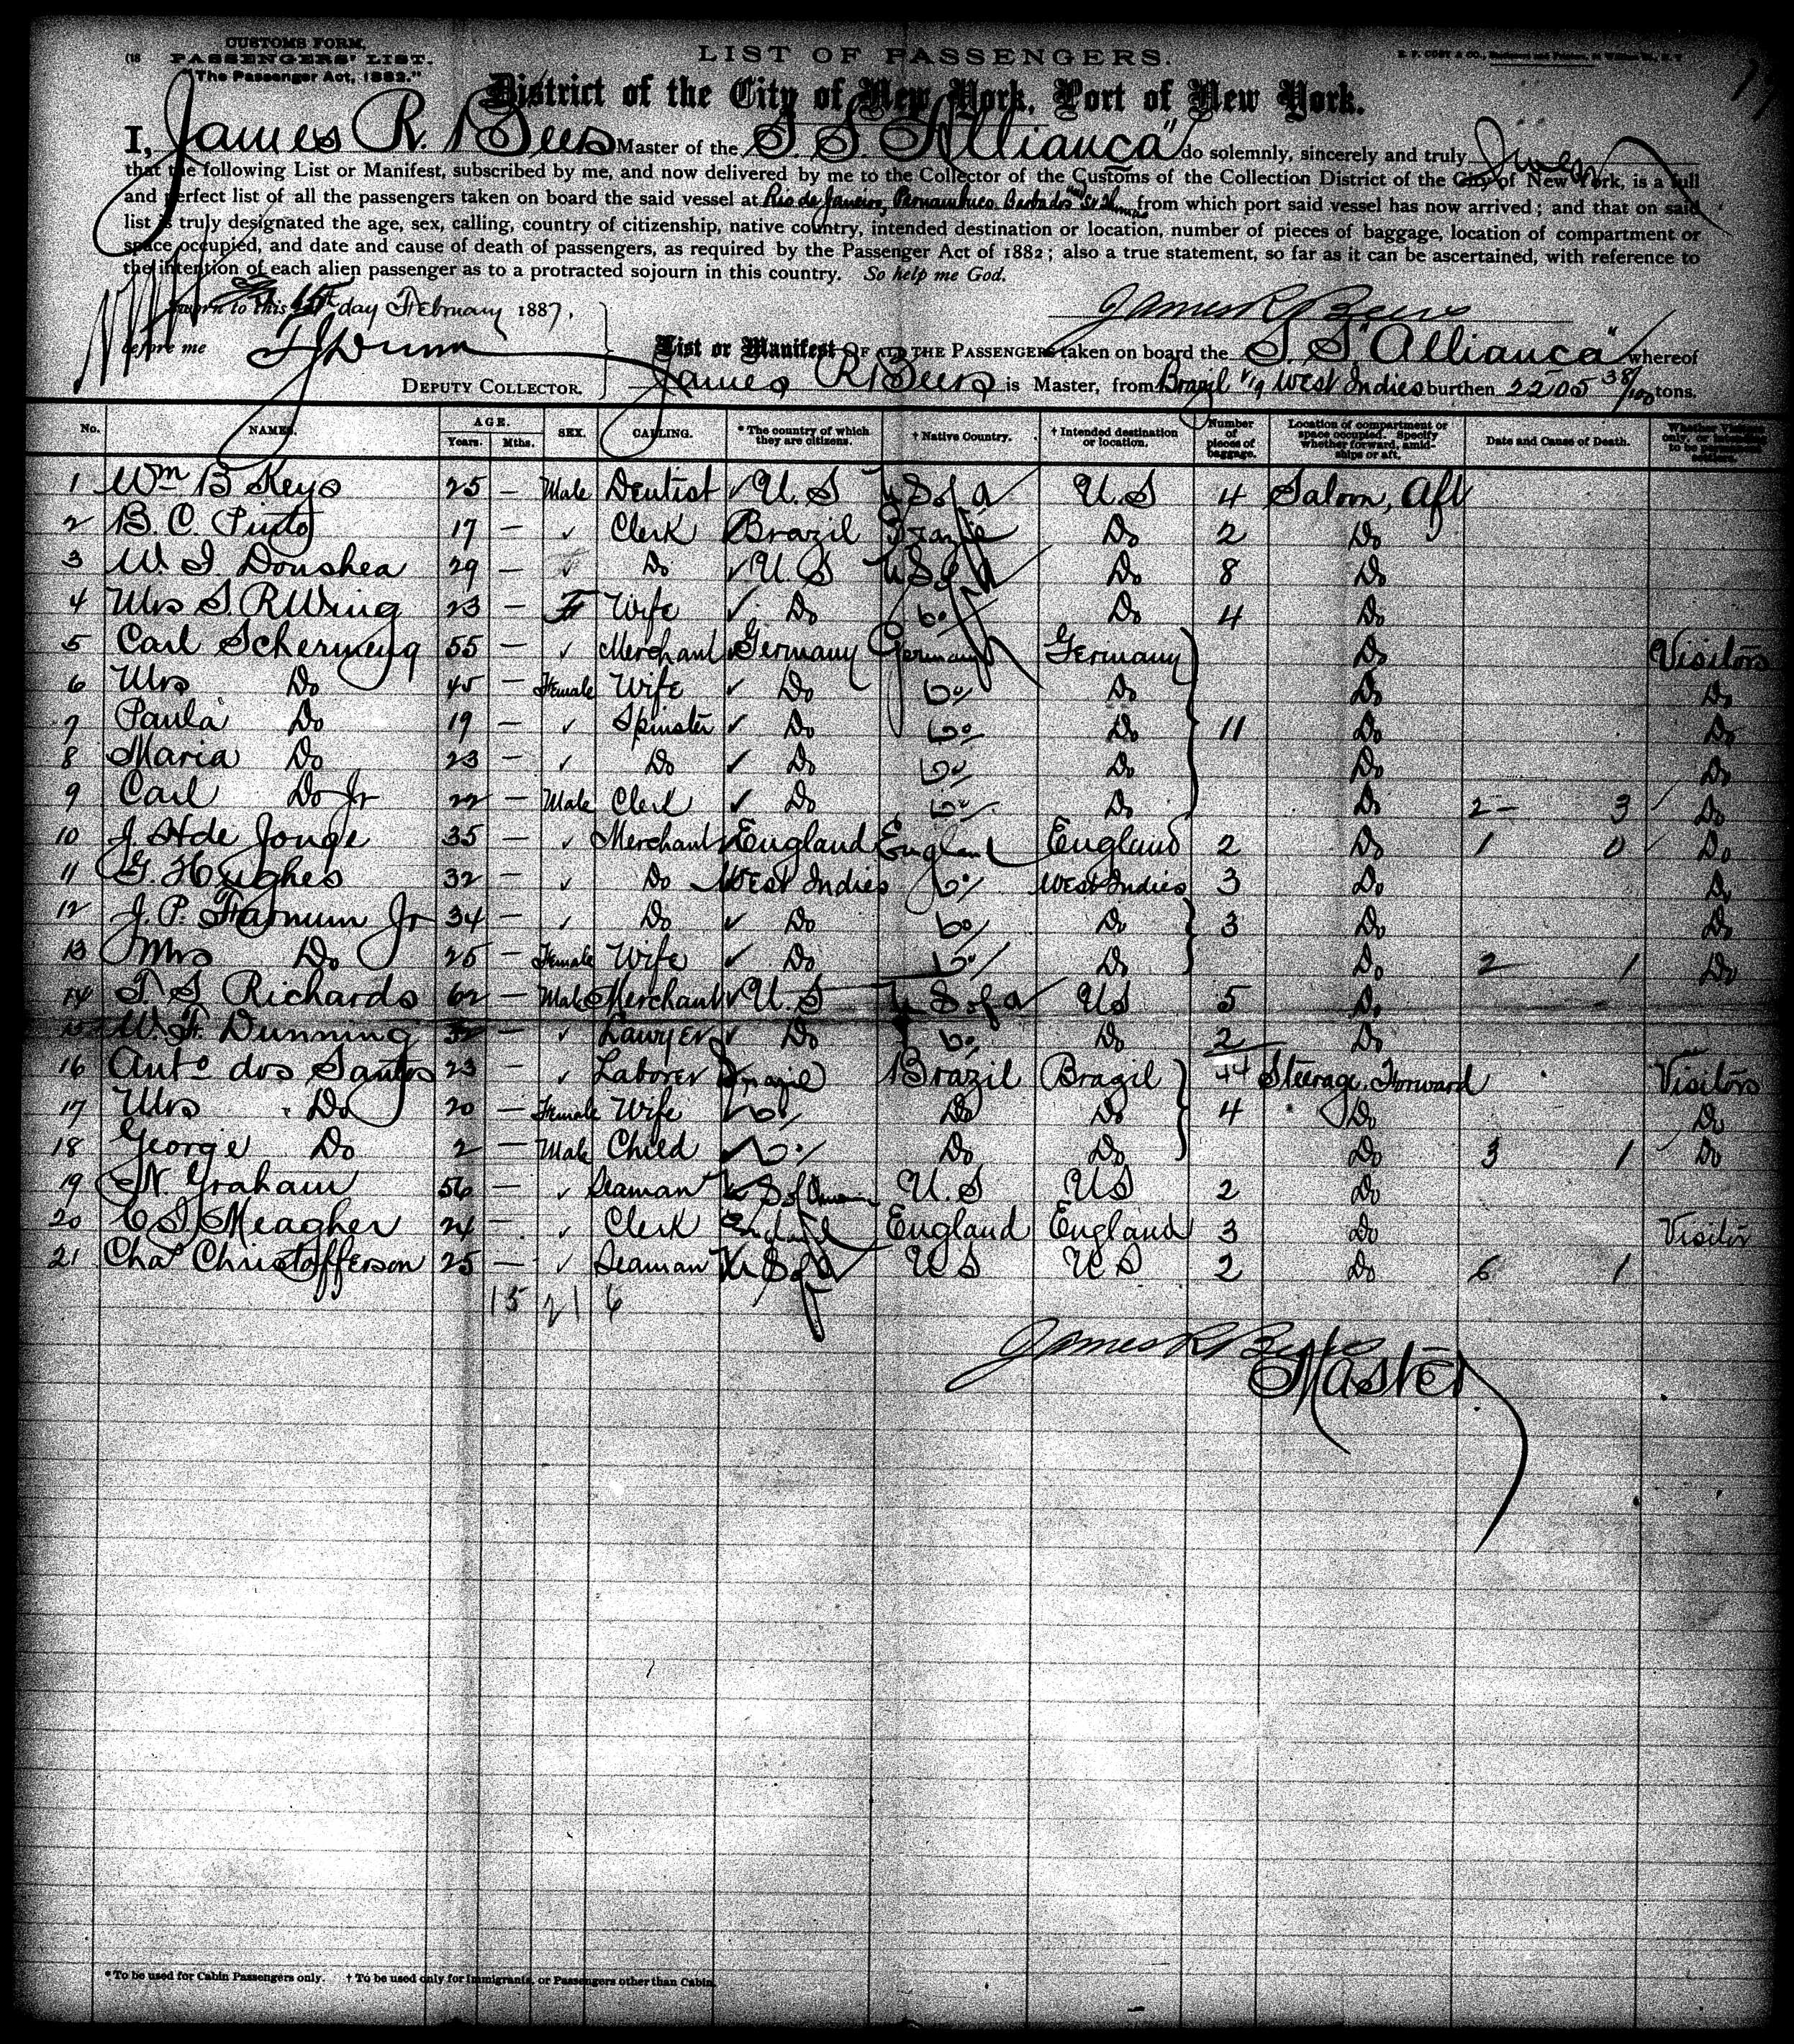 CUSTOMS FORM.
PASSENGERS' LIST.
"The Passenger Act, 1882."
LIST OF PASSENGERS.
District of the City of New York, Port of New York.
I, James R. Beers Master of the S. S. "Allianca" do solemnly, sincerely and truly Swear
that the following List or Manifest, subscribed by me, and now delivered by me to the Collector of the Customs of the Collection District of the City of New York, is a full
and perfect list of all the passengers taken on board the said vessel at Rio de Janeiro, Pernambuco Barbados and St Thomas from which port said vessel has now arrived; and that on said
list is truly designated the age, sex, calling, country of citizenship, native country, intended destination or location, number of pieces of baggage, location of compartment or
space occupied, and date and cause of death of passengers, as required by the Passenger Act of 1882; also a true statement, so far as it can be ascertained, with reference to
the intention of each alien passenger as to a protracted sojourn in this country. So help me God.
Sworn to this 15th day February 1887,
James R Beers
before me
List or Manifest OF ALL THE PASSENGERS taken on board the S. S. "Allianca" whereof
DEPUTY COLLECTOR. James R Beers is Master, from Brazil via West Indies burthen 2205 38/100 tons.
No. NAMES. AGE. Years. Mths. SEX. CALLING. * The country of which they are citizens. † Native Country. † Intended destination or location. Number of pieces of baggage. Location of compartment or space occupied. Specify whether forward, amidships or aft. Date and Cause of Death. Whether Visitors only, or intending to be permanent settlers.
1 Wm B Keys 25 — Male Dentist U. S U S of A U. S 4 Saloon, Aft
2 B. C. Pinto 17 — ✓ Clerk Brazil Brazil Do 2 Do
3 W. I. Donshea 29 — ✓ Do ✓ U. S U S of A Do 8 Do
4 Mrs S. R Wing 23 — F Wife ✓ Do Do Do 4 Do
5 Carl Schermeng 55 — ✓ Merchant Germany Germany Germany Do Visitors
6 Mrs Do 45 — Female Wife ✓ Do Do Do Do Do
7 Paula Do 19 — ✓ Spinster ✓ Do Do Do 11 Do Do
8 Maria Do 23 — ✓ Do ✓ Do Do Do Do Do
9 Carl Do Jr 22 — Male Clerk ✓ Do Do Do Do 2 — 3 Do
10 J. H de Jonge 35 — ✓ Merchant England England England 2 Do 1 0 Do
11 G. Hughes 32 — ✓ Do West Indies Do West Indies 3 Do Do
12 J. P. Farnum Jr 34 — ✓ Do ✓ Do Do Do 3 Do Do
13 Mrs Do 25 — Female Wife ✓ Do Do Do Do 2 1 Do
14 T. S Richards 62 — Male Merchant U. S U S of A US 5 Do
15 W. F. Dunning 32 — ✓ Lawyer ✓ Do Do Do 2 Do
16 Anto dos Santos 23 — ✓ Laborer Brazil Brazil Brazil 44 Steerage. Forward Visitors
17 Mrs Do 20 — Female Wife Do Do Do 4 Do Do
18 George Do 2 — Male Child Do Do Do Do 3 1 Do
19 N. Graham 56 — ✓ Seaman U. S US 2 Do
20 C. I. Meagher 24 — ✓ Clerk England England England 3 Do Visitor
21 Chas Christofferson 25 — ✓ Seaman U S of A U S U S 2 Do 6 1
15 21 6
James R Beers
Master
* To be used for Cabin Passengers only. † To be used only for Immigrants, or Passengers other than Cabin.